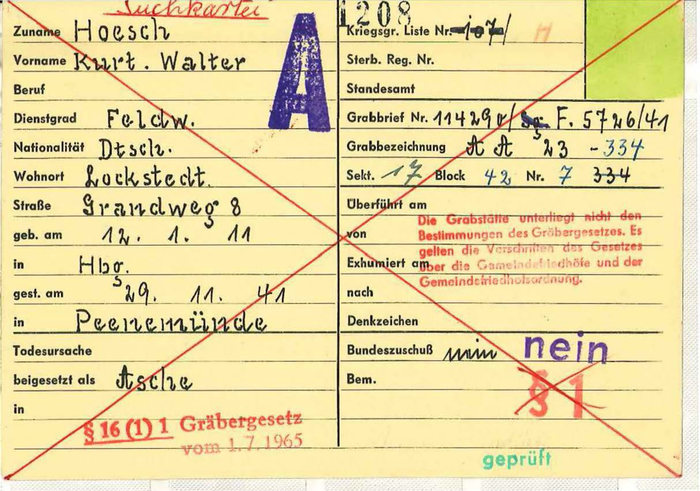 Suchkartei
1208
Zuname Hoesch
Vorname Kurt. Walter
Beruf
Dienstgrad Feldw.
Nationalität Dtsch.
Wohnort Lockstedt.
Straße Grandweg 8
geb. am 12. 1. 11
in Hbg.
gest. am 29. 11. 41
in Peenemünde
Todesursache
beigesetzt als Asche
in
§ 16 (1) 1 Gräbergesetz
vom 1.7.1965
A
Kriegsgr. Liste Nr. 107/
Sterb. Reg. Nr.
Standesamt
Grabbrief Nr. 114290/ F. 5726/41
Grabbezeichnung A A 23 - 334
Sekt. 17 Block 42 Nr. 7 334
Überführt am
von
Exhumiert am
nach
Die Grabstätte unterliegt nicht den
Bestimmungen des Gräbergesetzes. Es
gelten die Vorschriften des Gesetzes
über die Gemeindefriedhöfe und der
Gemeindefriedhofsordnung.
Denkzeichen
Bundeszuschuß nein nein
Bem.
§ 1
geprüft